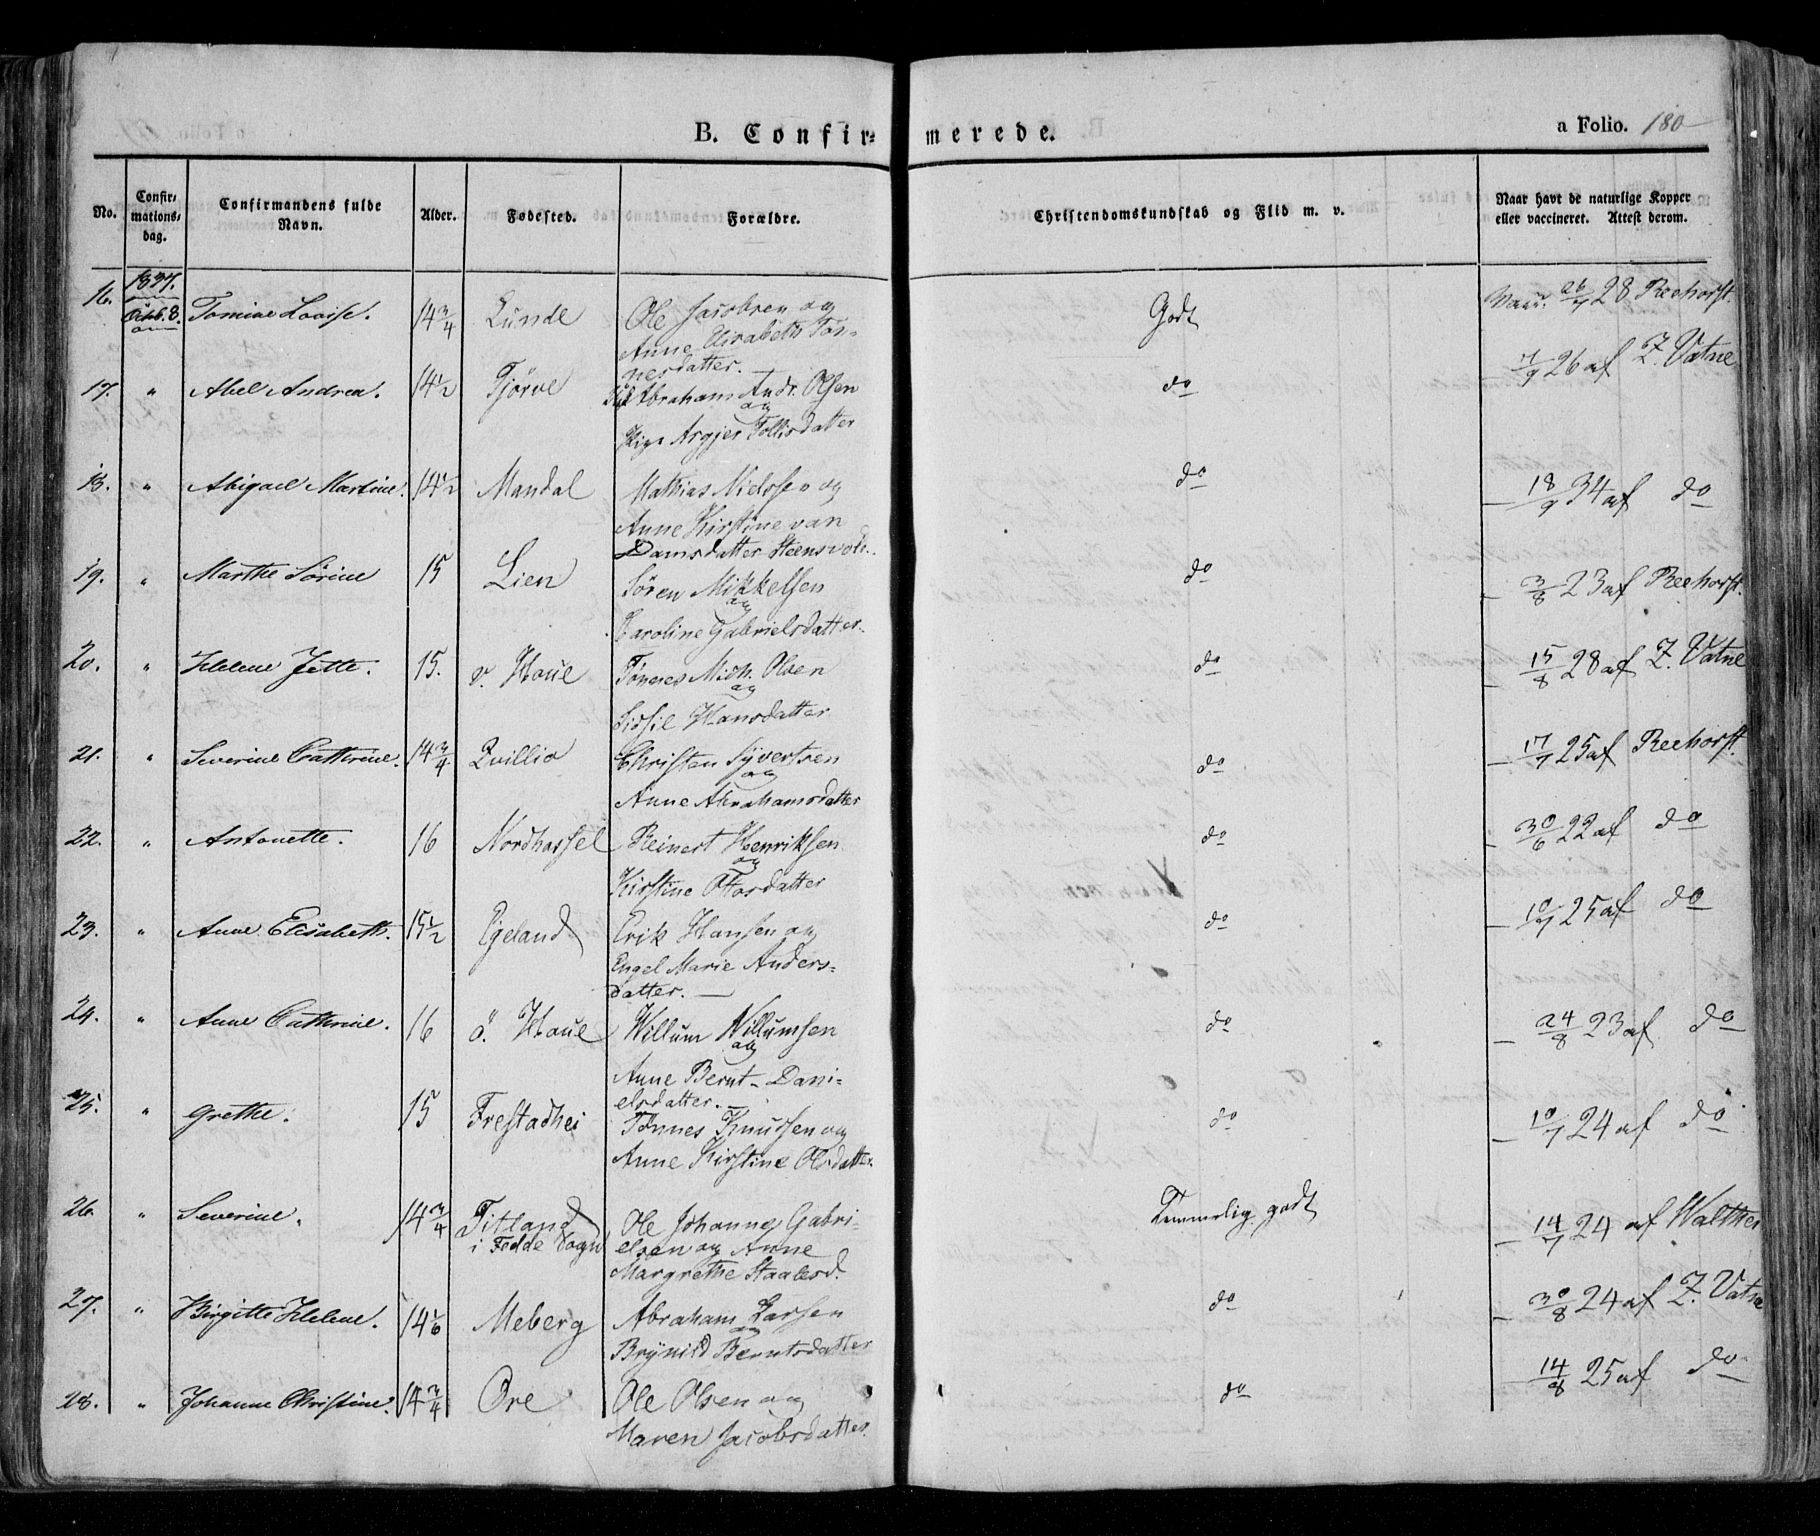 B. Confir-merede.
a Folio. 180
No.
Confir-
mations-
dag.
Confirmandens fulde
Navn.
Alder.
Fødested.
Forældre.
Christendomskundskab og Flid m. v.
Naar havt de naturlige Kopper
eller vaccineret. Attest derom.
1837.
16. Octb. 8. Tomine Lovise. 14 3/4 Lunde Ole Jacobsen og Godt Vacc. 26/7 28 Reehorst.
Anne Elisabeth Tøn-
nesdatter.
17. " Abel Andrea. 14 1/2 Tjörve Abraham Andr. Olsen do 7/9 26 af Z. Vatne
og
Asgjer Tollisdatter
18. " Abigael Martine. 14 1/2 Mandal Mathias Nielssen og do – 18/9 34 af do
Anne Kirstine van
Damsdatter Steensvold.
19. " Marthe Sørine 15 Lien Søren Mikkelsen do – 3/8 23 af Reehorst.
og
Caroline Gabrielsdatter.
20. " Helene Jette. 15. v. Haue Tønnes Mich. Olsen do – 15/8 28 af Z. Vatne
og
Sidsil Hansdatter
21. " Severine Cathrine. 14 3/4 Qvillio Christen Syvertsen do – 17/7 25 af Reehorst.
og
Anne Abrahamsdatter
22. " Antonette. 16 Nordhassel Reinert Henriksen do – 30/6 22 af do
og
Kirstine Ottosdatter
23. " Anne Elisabeth. 15 1/2 Egeland Erik Hansen og do – 10/7 25 af do
Engel Marie Anders-
datter. —
24. " Anne Cathrine. 16 ö. Haue Willum Willumsen do – 24/8 23 af do
og
Anne Bernt. Dani-
elsdatter.
25. " Grethe. 15 Frestadhei Tønnes Knudsen og do – 10/7 24 af do
Anne Kirstine Olsdatter.
26. " Severine. 14 3/4 Titland Ole Johannes Gabri- Temmelig godt – 14/7 24 af Walther
i Fedde Sogn elsen og Anne
Margrethe Staalesd.
27. " Birgitte Helene. 14 1/6 Meberg Abraham Larsen do – 30/8 24 af Z. Vatne
og
Brynild Berntsdatter
28. " Johanne Christine. 14 3/4 Ore Ole Olsen og do – 14/8 25 af do
Maren Jacobsdatter.